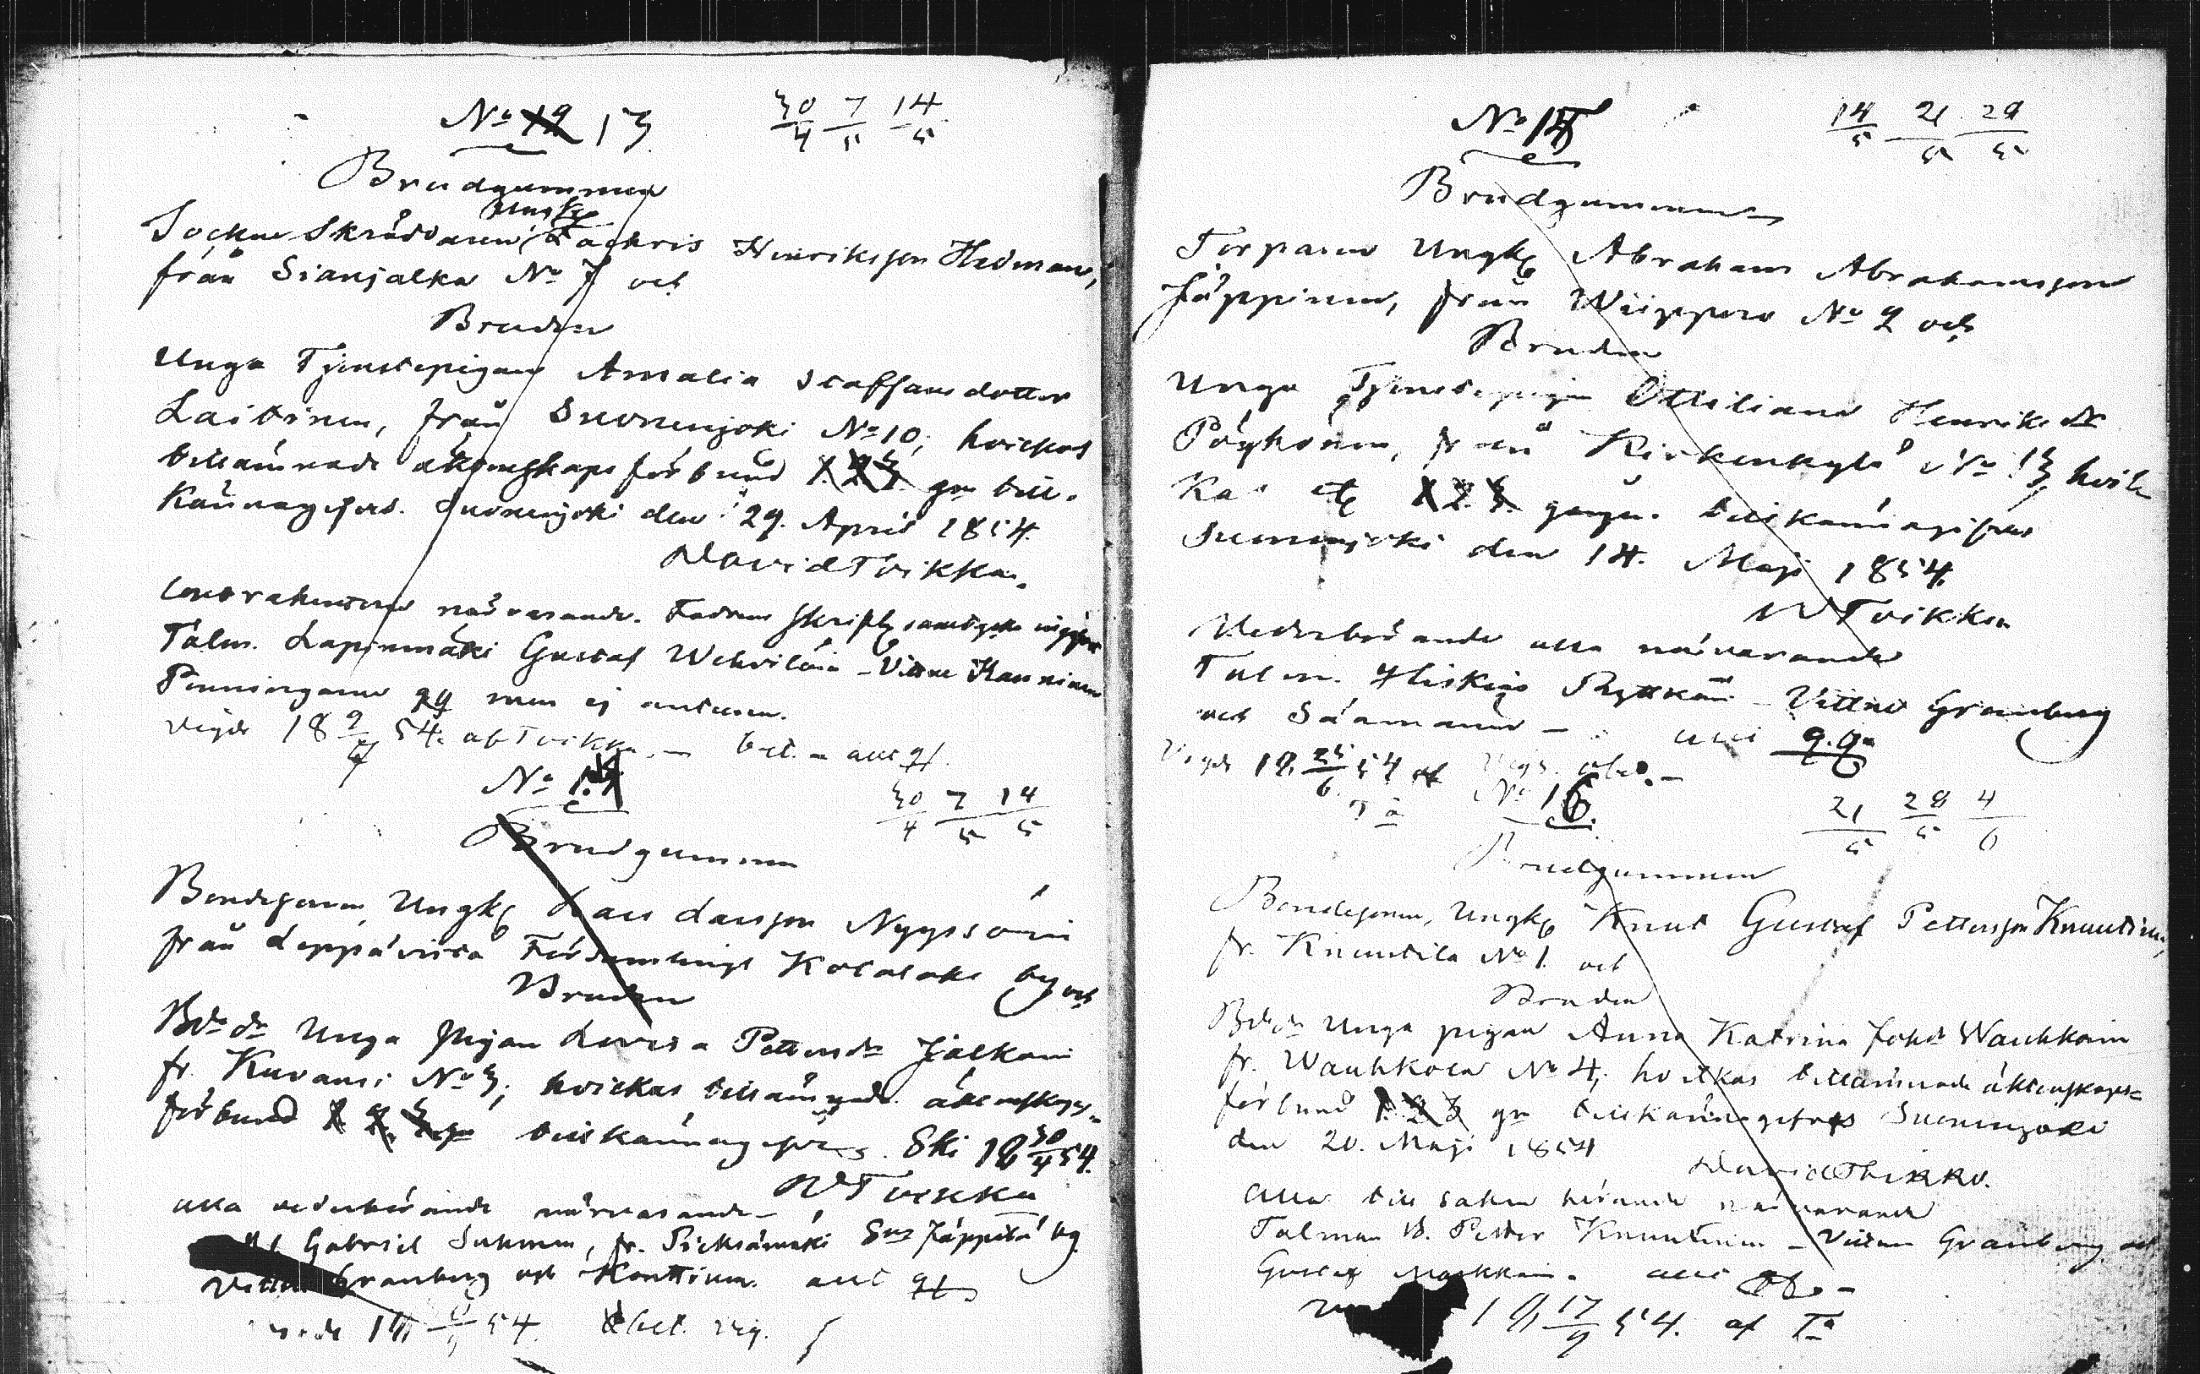 No 13
30/4 7/5 14/5
Brudgummen
Ungk
Sockne Skräddaren Zachris Henriksson Hedman,
från Sianjalka No 7 och
Bruden
Unga Tjenstepigan Amalia Staffansdotter
Laitinen, från Suonenjoki No 10; hvilkas
tillämnade äktenskaps förbund 1. 2. 3. gn till-
kännagifves. Suonenjoki den 29. April 1854.
David Toikka.
Contrahenterne närvarande. Fadrens skriftl. samtycke
Talm. Lapinmäki Gustaf Wehviläin - Vittne Kauninen
Penningarne men ej
Vigde 18 54. af Toikka. — bet. -
No 14
30/4 7/5 14/5
Brudgummen
Bondesonen, Ungk Lars Larsson Nyyssönen
från Leppävirta Församlings Kotalaks by och
Bruden
Bdedr Unga Pigan Lovisa Pettersdr Jalkain
fr. Kuvansi No 3; hvilkas tillämnade äktenskaps-
förbund 1. 2. 3. gn tillkännagifves. Ski 18 30/4 54.
D Toikka
alla vederbörande närvarande -
Gabriel Suhonen, fr. Pieksämäki Sns Jäppilä by
Vittne Granberg och Konttinen.
18 54. bet. vig.
No 15
14/5 21/5 29/5
Brudgummen
Torparen Ungk Abraham Abrahamsson
Jäppinen, från Wiippero No 2 och
Bruden
Unga Tjenstepigan Ottiliana Henriksdr
Pöyhönen, från Kirkonkylä No 13, hvil-
kas 1. 2. 3. gången tillkännagifves
Suonenjoki den 14. Maji 1854.
D Toikka
Vederbörande alla närvarande
Talm. Hiskias Ryttkön - Vittne Granberg
och Säämänen -
Vigde 18 25/6 54 af
No 16.
21/5 28/5 4/6
Brudgummen
Bondesonen, Ungk Knut Gustaf Pettersson Knuutinen,
fr. Knuutila No 1. och
Bruden
Bdedr Unga pigan Anna Katrina Johdr Wauhkoin
fr. Wauhkola No 4; hvilkas tillämnade äktenskaps=
förbund 1. 2. 3 gn tillkännagifves Suonenjoki
den 20. Maji 1854
David Thoikka.
Alla till saken hörande närvarande
Talman B. Petter Knuutinen - Vittne Granberg och
Gustaf
18 17/9 54. af Ta